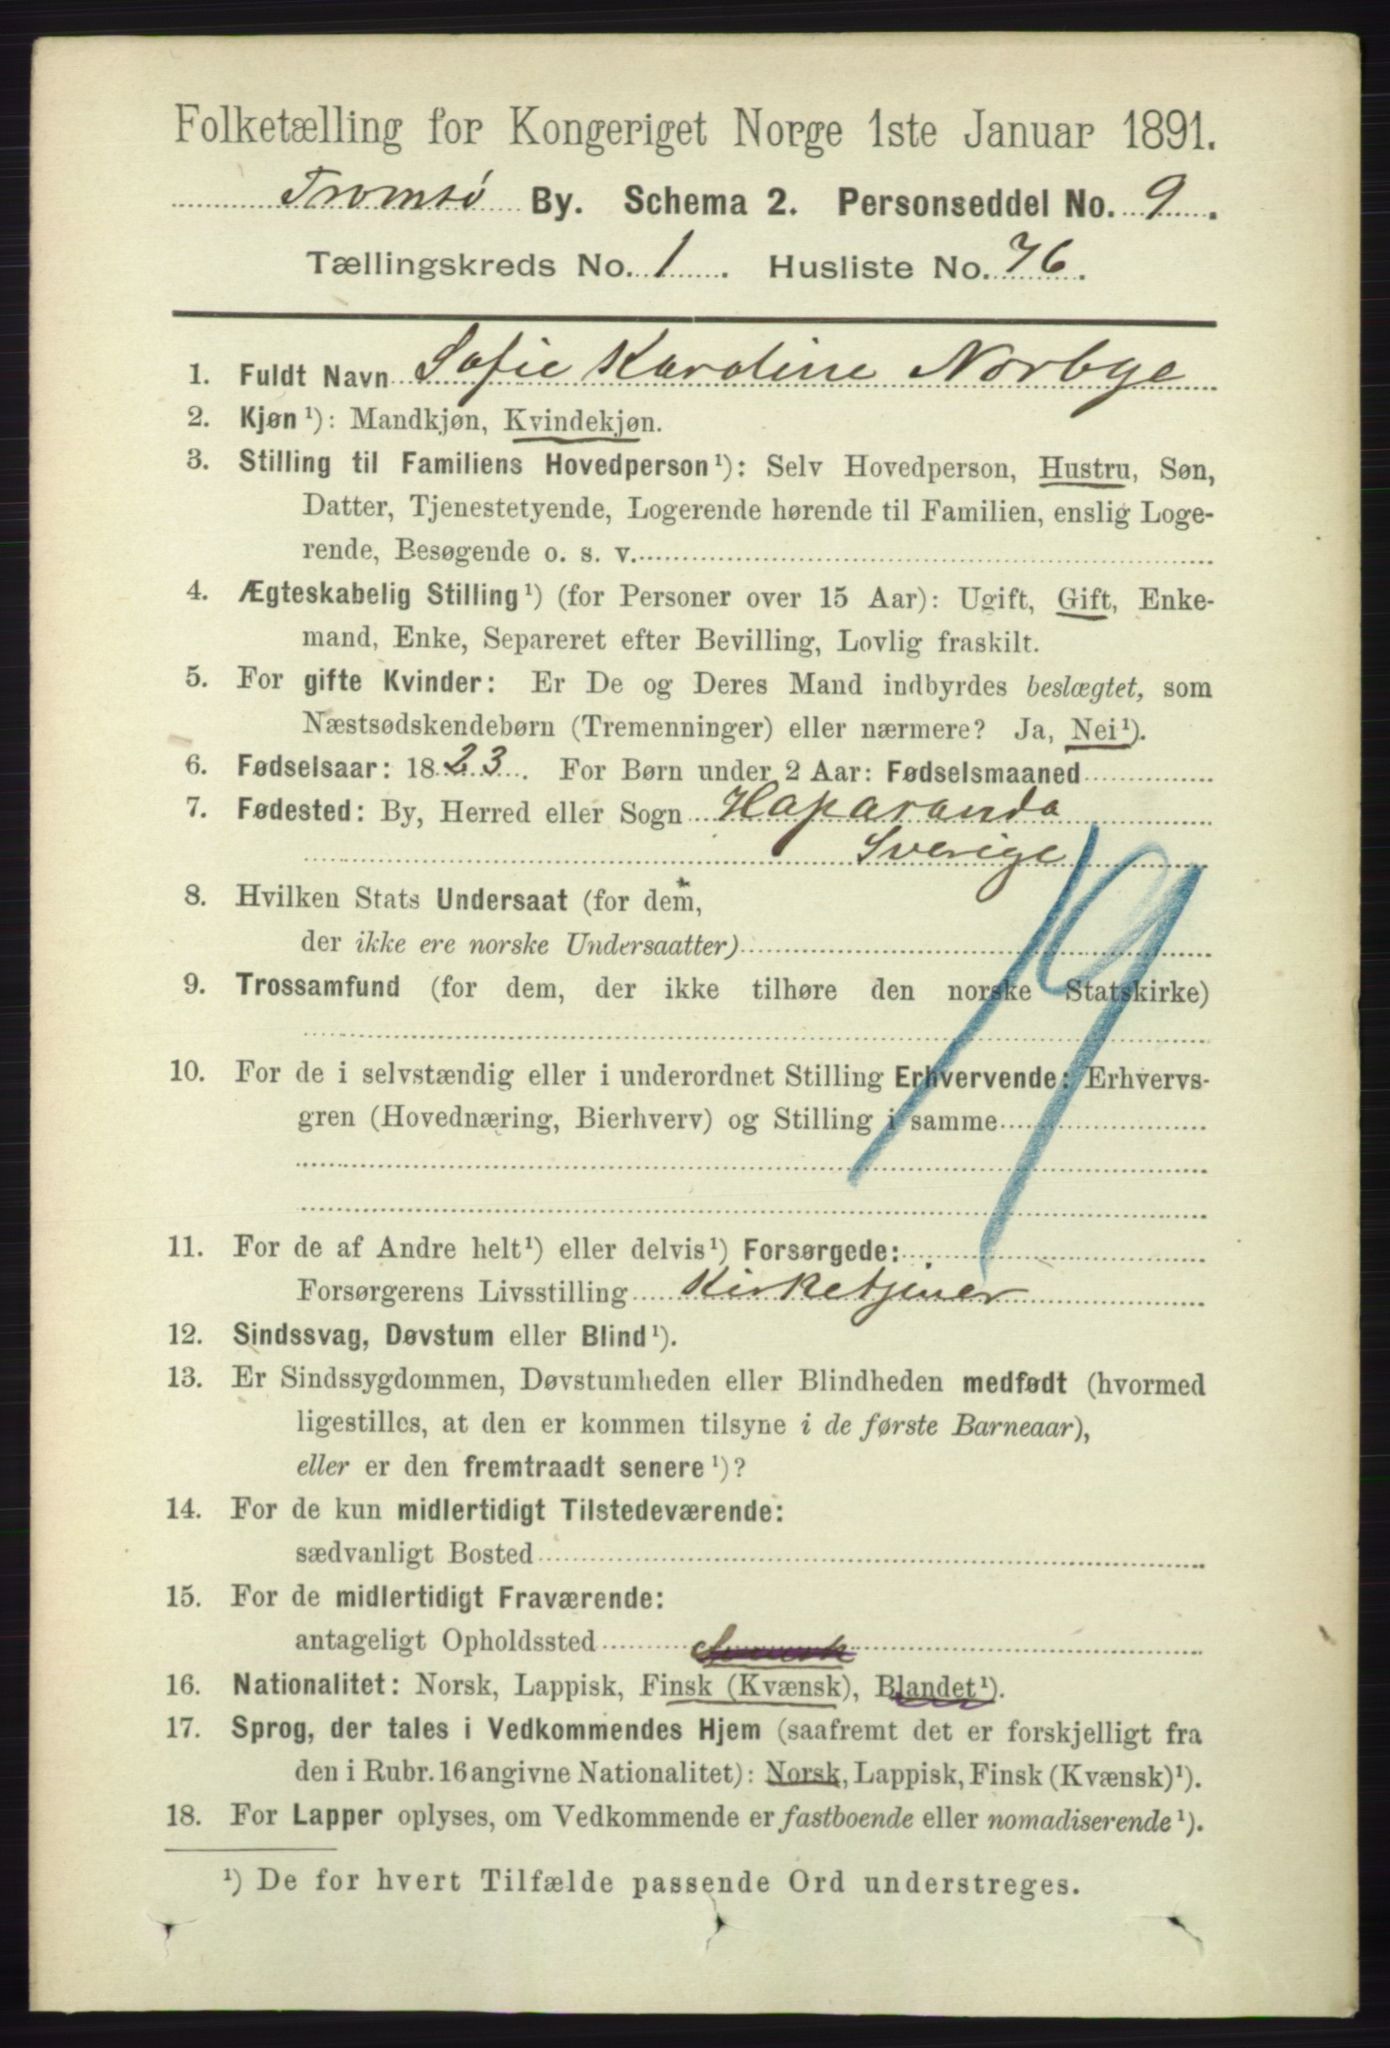 Folketælling for Kongeriget Norge 1ste Januar 1891.
Tromsø By. Schema 2. Personseddel No. 9.
Tællingskreds No. 1. Husliste No. 76.
1. Fuldt Navn Sofie Karoline Norbye
2. Kjøn¹): Mandkjøn, Kvindekjøn.
3. Stilling til Familiens Hovedperson¹): Selv Hovedperson, Hustru, Søn,
Datter, Tjenestetyende, Logerende hørende til Familien, enslig Loge-
rende, Besøgende o. s. v.
4. Ægteskabelig Stilling¹) (for Personer over 15 Aar): Ugift, Gift, Enke-
mand, Enke, Separeret efter Bevilling, Lovlig fraskilt.
5. For gifte Kvinder: Er De og Deres Mand indbyrdes beslægtet, som
Næstsødskendebørn (Tremenninger) eller nærmere? Ja, Nei¹).
6. Fødselsaar: 1823. For Børn under 2 Aar: Fødselsmaaned
7. Fødested: By, Herred eller Sogn Haparanda
Sverige
8. Hvilken Stats Undersaat (for dem,
der ikke ere norske Undersaatter)
19
9. Trossamfund (for dem, der ikke tilhøre den norske Statskirke)
10. For de i selvstændig eller i underordnet Stilling Erhvervende: Erhvervs-
gren (Hovednæring, Bierhverv) og Stilling i samme
11. For de af Andre helt¹) eller delvis¹) Forsørgede:
Forsørgerens Livsstilling Kirketjener
12. Sindssvag, Døvstum eller Blind¹).
13. Er Sindssygdommen, Døvstumheden eller Blindheden medfødt (hvormed
ligestilles, at den er kommen tilsyne i de første Barneaar),
eller er den fremtraadt senere¹)?
14. For de kun midlertidigt Tilstedeværende:
sædvanligt Bosted
15. For de midlertidigt Fraværende:
antageligt Opholdssted Svensk
16. Nationalitet: Norsk, Lappisk, Finsk (Kvænsk), Blandet¹).
17. Sprog, der tales i Vedkommendes Hjem (saafremt det er forskjelligt fra
den i Rubr. 16 angivne Nationalitet): Norsk, Lappisk, Finsk (Kvænsk)¹).
18. For Lapper oplyses, om Vedkommende er fastboende eller nomadiserende¹).
¹) De for hvert Tilfælde passende Ord understreges.